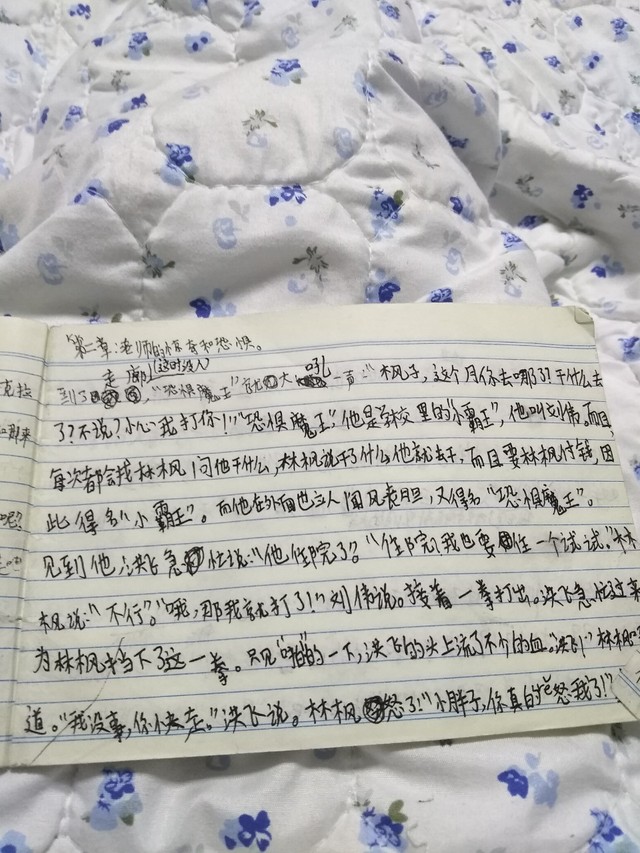 第二章:老师的惊奇和恐惧。
走廊(这时没人) 吼
到了,"恐惧魔王"就大一声:"枫子,这个月你去哪了?干什么去
克拉
了?不说?小心我打你!""恐惧魔王",他是学校里的"小霸王",他叫刘倩。而且,
每次都会找林枫,问他干什么,林枫说干了什么他就去干,而且要林枫付钱,因
此得名"小霸王"。而他在外面也令人闻风丧胆,又得名"恐惧魔王"。
见到他,洪飞急忙说:"他住院了。""住院,我也要住一个试试。"林
枫说:"不行。""哦,那我就打了!"刘伟说。接着一拳打出。洪飞急忙过来
为林枫挡下了这一拳。只见"啪"的一下,洪飞的头上流了不少的血。"洪飞!"林枫
道。"我没事,你快走。"洪飞说。林枫怒了!"小胖子,你真的惹怒我了!"